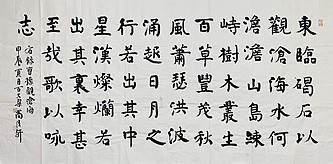 東臨碣石以
觀滄海水何
澹澹山島竦
峙樹木叢生
百草豐茂秋
風蕭瑟洪波
涌起日月之
行若出其中
星漢燦爛若
出其裏幸甚
至哉歌以咏
志
曹操觀滄海
甲辰夏月